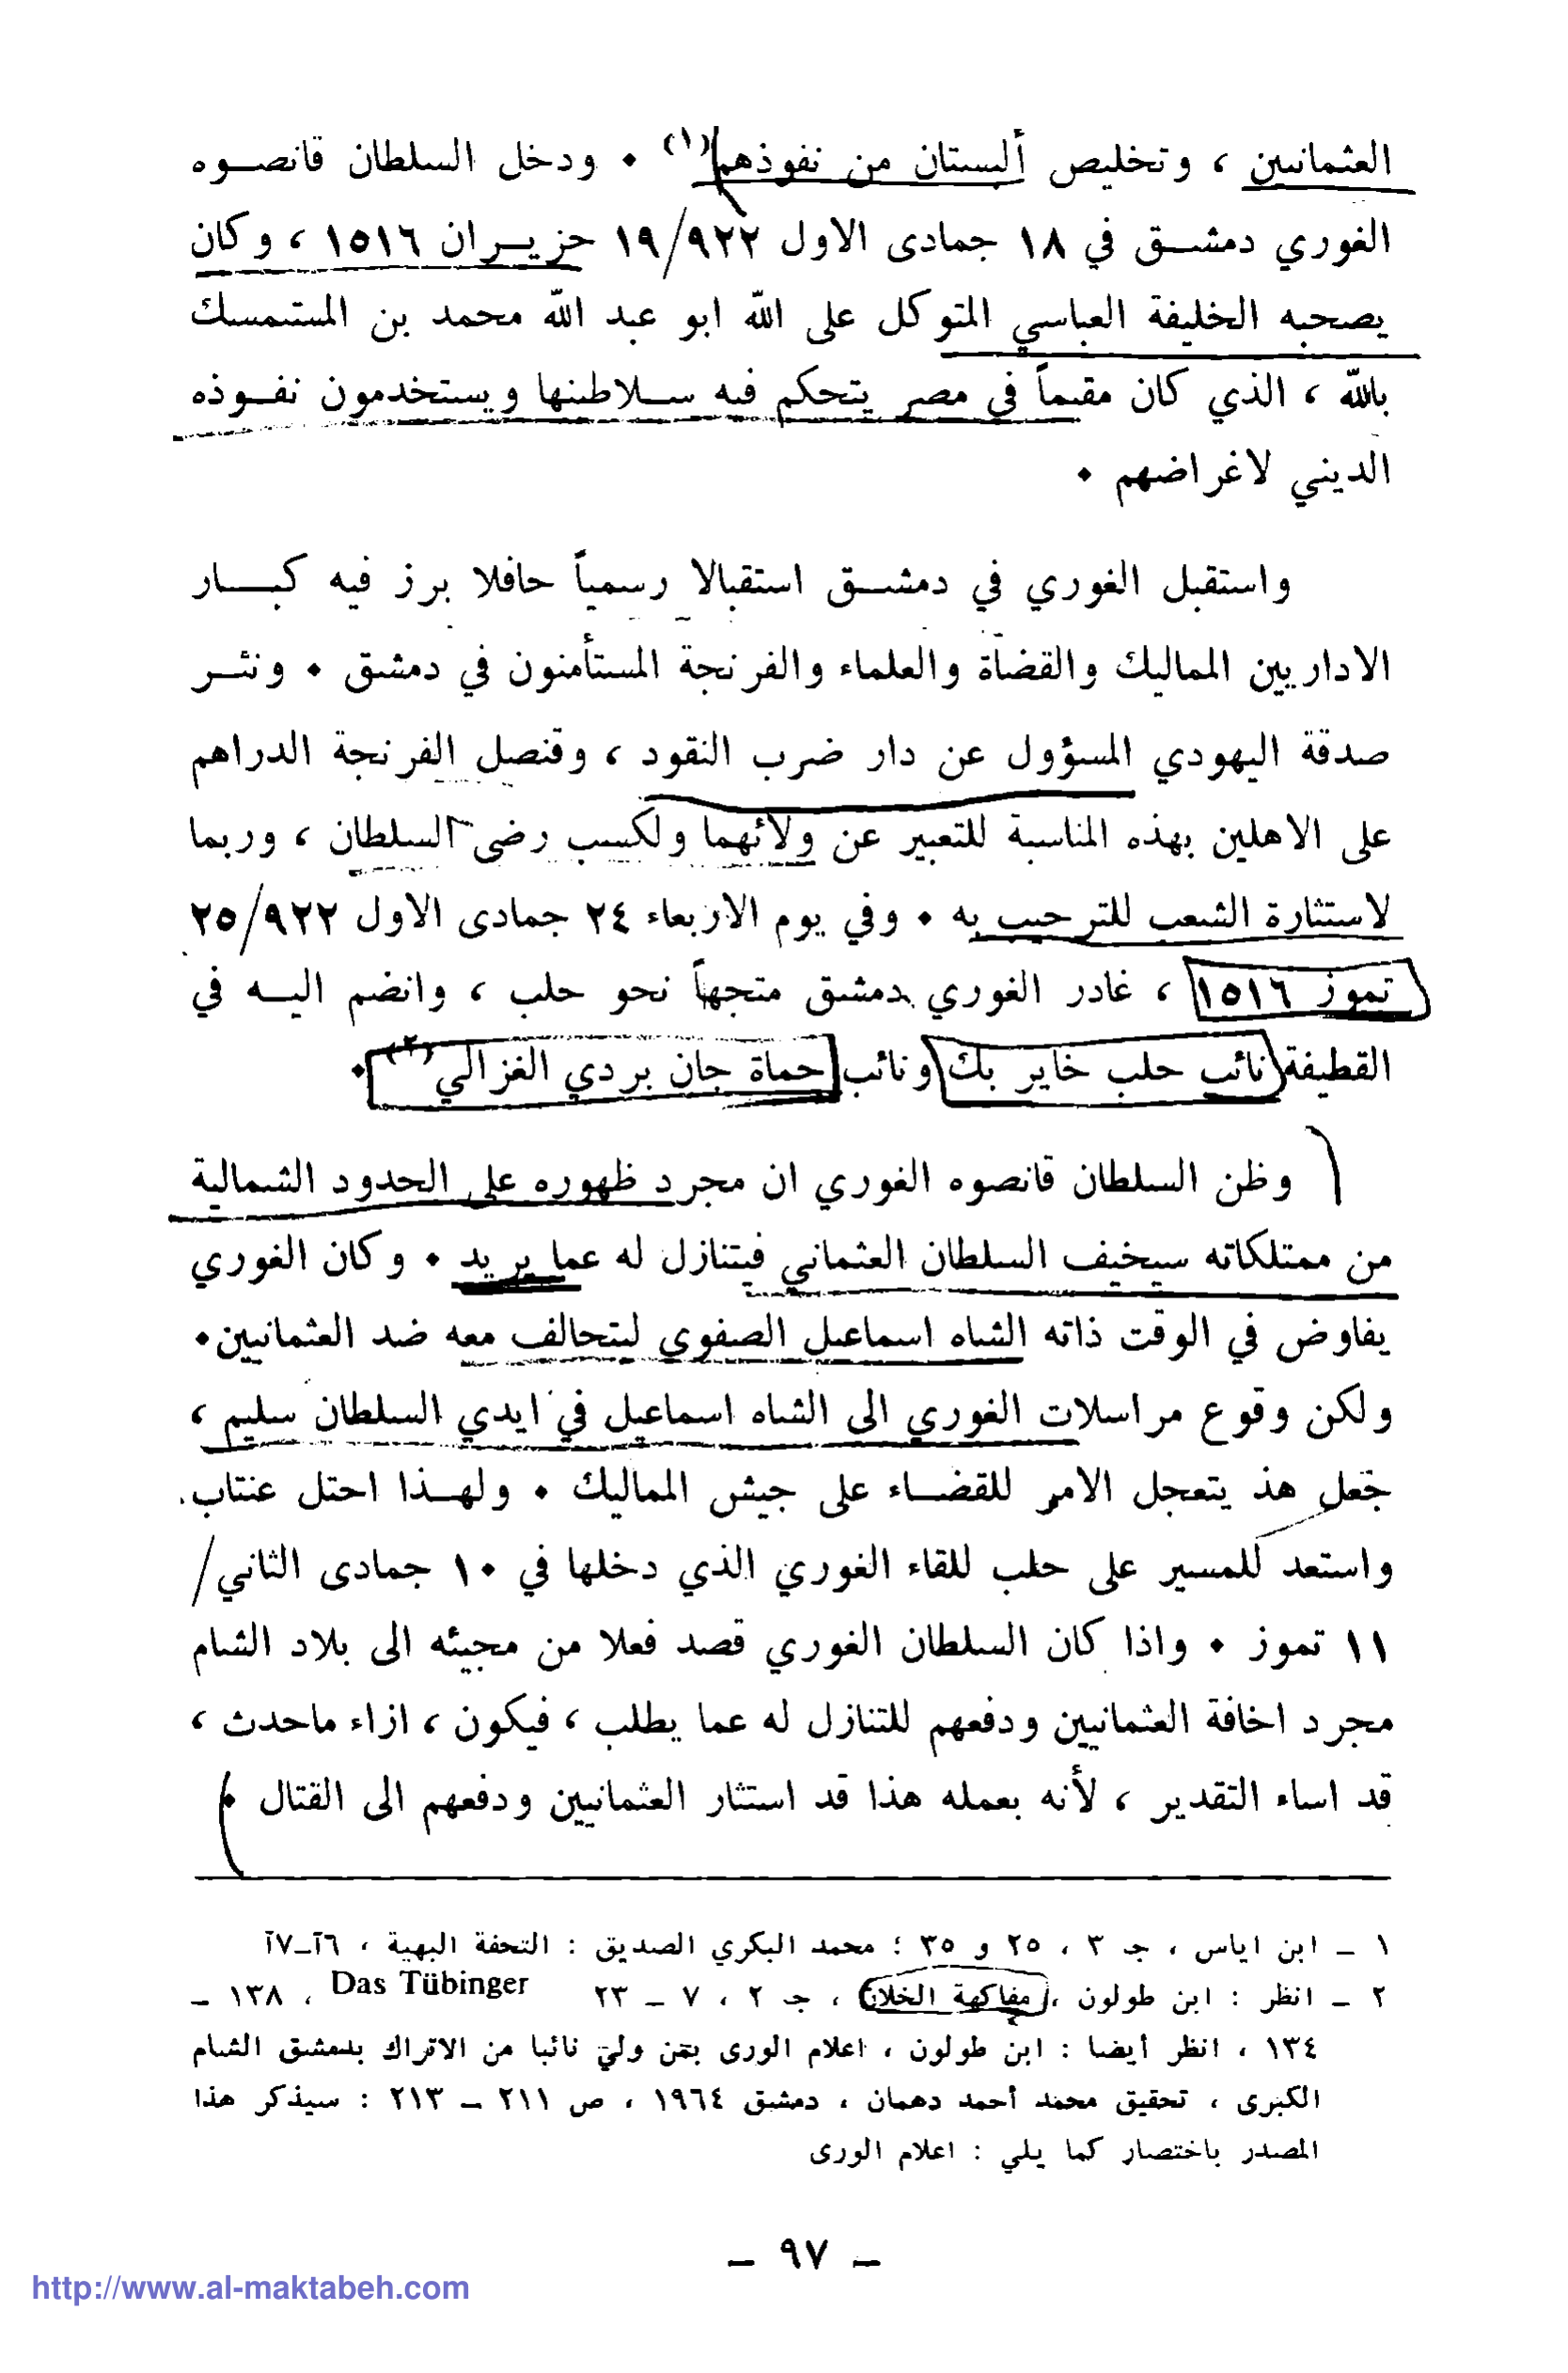 العثمانيين ، وتخليص ألبستان من نفوذهم(١) ٠ ودخل السلطان قانصوه
الغوري دمشق في ١٨ جمادى الاول ١٩/٩٢٢ حزيران ١٥١٦ ، وكان
يصحبه الخليفة العباسي المتوكل على الله ابو عبد الله محمد بن المستمسك
بالله ، الذي كان مقيماً في مصر يتحكم فيه سلاطينها ويستخدمون نفوذه
الديني لاغراضهم ٠
واستقبل الغوري في دمشق استقبالا رسمياً حافلا برز فيه كبار
الاداريين المماليك والقضاة والعلماء والفرنجة المستأمنون في دمشق ٠ ونثر
صدقة اليهودي المسؤول عن دار ضرب النقود ، وقنصل الفرنجة الدراهم
على الاهلين بهذه المناسبة للتعبير عن ولائهما ولكسب رضى السلطان ، وربما
لاستثارة الشعب للترحيب به ٠ وفي يوم الاربعاء ٢٤ جمادى الاول ٢٥/٩٢٢
تموز ١٥١٦ ، غادر الغوري دمشق متجهاً نحو حلب ، وانضم اليه في
القطيفة نائب حلب خاير بك ونائب حماة جان بردي الغزالي(٢) ٠
وظن السلطان قانصوه الغوري ان مجرد ظهوره على الحدود الشمالية
من ممتلكاته سيخيف السلطان العثماني فيتنازل له عما يريد ٠ وكان الغوري
يفاوض في الوقت ذاته الشاه اسماعيل الصفوي ليتحالف معه ضد العثمانيين٠
ولكن وقوع مراسلات الغوري الى الشاه اسماعيل في ايدي السلطان سليم ،
جعل هذ يتعجل الامر للقضاء على جيش المماليك ٠ ولهذا احتل عنتاب
واستعد للمسير على حلب للقاء الغوري الذي دخلها في ١٠ جمادى الثاني/
١١ تموز ٠ واذا كان السلطان الغوري قصد فعلا من مجيئه الى بلاد الشام
مجرد اخافة العثمانيين ودفعهم للتنازل له عما يطلب ، فيكون ، ازاء ماحدث ،
قد اساء التقدير ، لأنه بعمله هذا قد استثار العثمانيين ودفعهم الى القتال ٠
١ ــ ابن اياس ، جـ ٣ ، ٢٥ و ٣٥ ؛ محمد البكري الصديق : التحفة البهية ، ٦آــ٧آ
٢ ــ انظر : ابن طولون ، مفاكهة الخلان ، جـ ٢ ، ٧ ــ ٢٣ Das Tübinger ، ١٣٨ ــ
١٣٤ ، انظر أيضا : ابن طولون ، اعلام الورى بمن ولي نائبا من الاتراك بدمشق الشام
الكبرى ، تحقيق محمد أحمد دهمان ، دمشق ١٩٦٤ ، ص ٢١١ ــ ٢١٣ : سيذكر هذا
المصدر باختصار كما يلي : اعلام الورى
ــ ٩٧ ــ
http://www.al-maktabeh.com